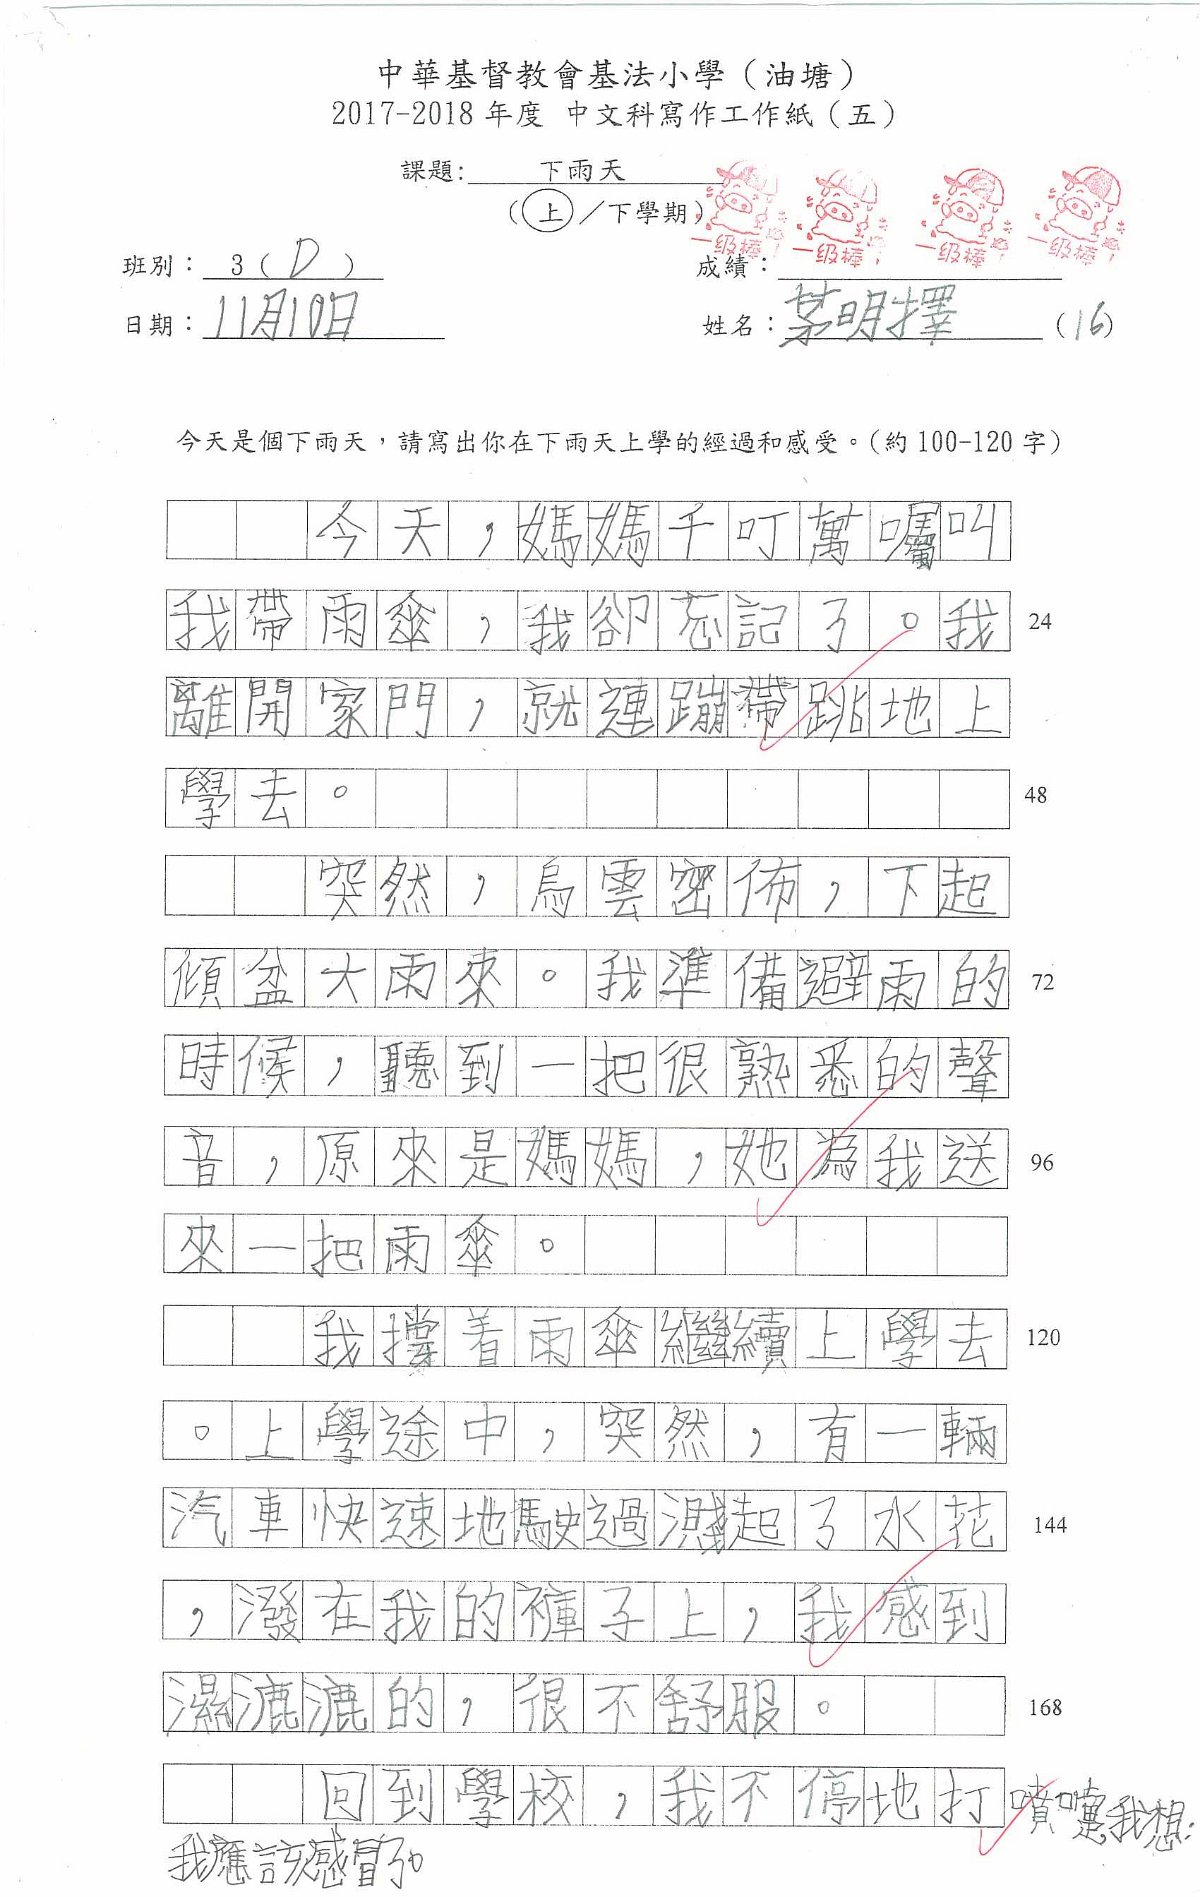 中華基督教會基法小學（油塘）
2017-2018 年度 中文科寫作工作紙（五）
課題：下雨天
（上／下學期）
一级棒 一级棒 一级棒 一级棒
班別：3（D） 成績：
日期：11月10日 姓名：茹明擇（16）
今天是個下雨天，請寫出你在下雨天上學的經過和感受。（約 100-120 字）
今天，媽媽千叮萬囑叫
我帶雨傘，我卻忘記了。我 24
離開家門，就連蹦帶跳地上
學去。 48
突然，烏雲密佈，下起
傾盆大雨來。我準備避雨的 72
時候，聽到一把很熟悉的聲
音，原來是媽媽，她為我送 96
來一把雨傘。
我撐着雨傘繼續上學去 120
。上學途中，突然，有一輛
汽車快速地駛過濺起了水花 144
，潑在我的褲子上，我感到
濕漉漉的，很不舒服。 168
回到學校，我不停地打噴嚏，我想：
我應該感冒了。